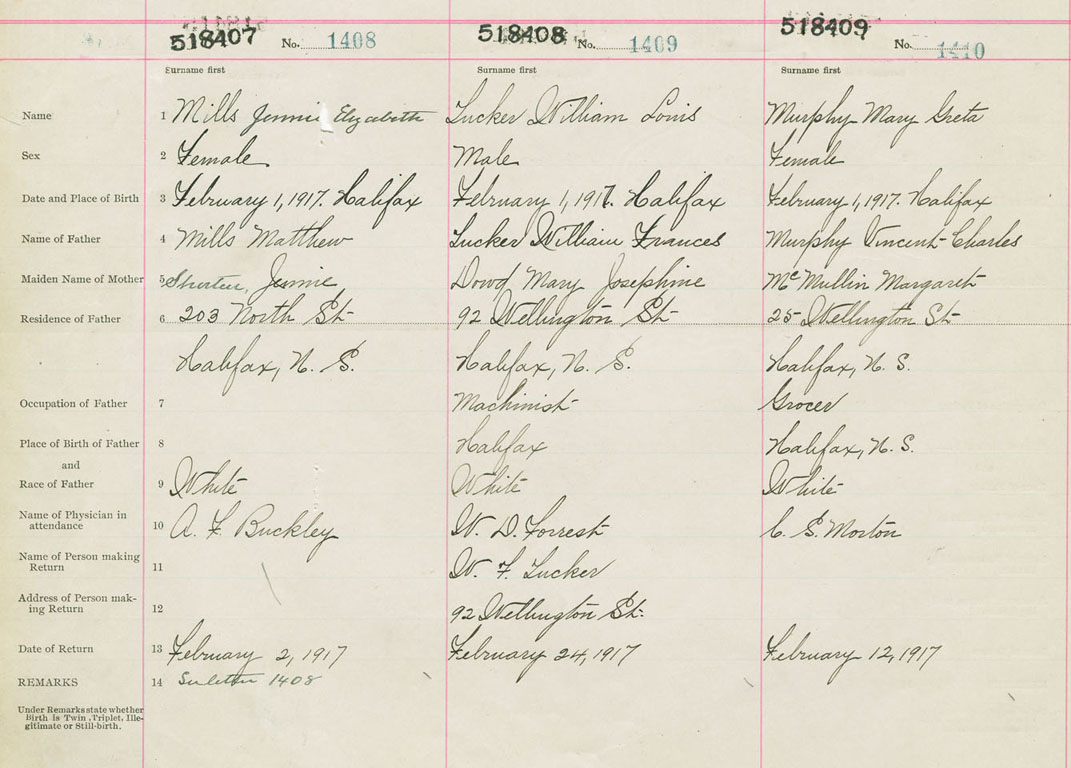 518407 No. 1408 518408 No. 1409 518409 No. 1410
Surname first Surname first Surname first
Name 1 Mills Jennie Elizabeth Tucker William Louis Murphy Mary Greta
Sex 2 Female Male Female
Date and Place of Birth 3 February 1, 1917. Halifax February 1, 1917. Halifax February 1, 1917. Halifax
Name of Father 4 Mills Matthew Tucker William Frances Murphy Vincent Charles
Maiden Name of Mother 5 Jennie Dowd Mary Josephine McMullin Margaret
Residence of Father 6 203 North St 92 Wellington St 25 Wellington St
Halifax, N. S. Halifax, N. S. Halifax, N. S.
Occupation of Father 7 Machinist Grocer
Place of Birth of Father 8 Halifax Halifax, N. S.
and
Race of Father 9 White White White
Name of Physician in
attendance 10 A. F. Buckley W. D. Forrest C. S. Morton
Name of Person making
Return 11 W. F. Tucker
Address of Person mak-
ing Return 12 92 Wellington St.
Date of Return 13 February 2, 1917 February 24, 1917 February 12, 1917
REMARKS 14 See letter 1408
Under Remarks state whether
Birth is Twin, Triplet, Ille-
gitimate or Still-birth.